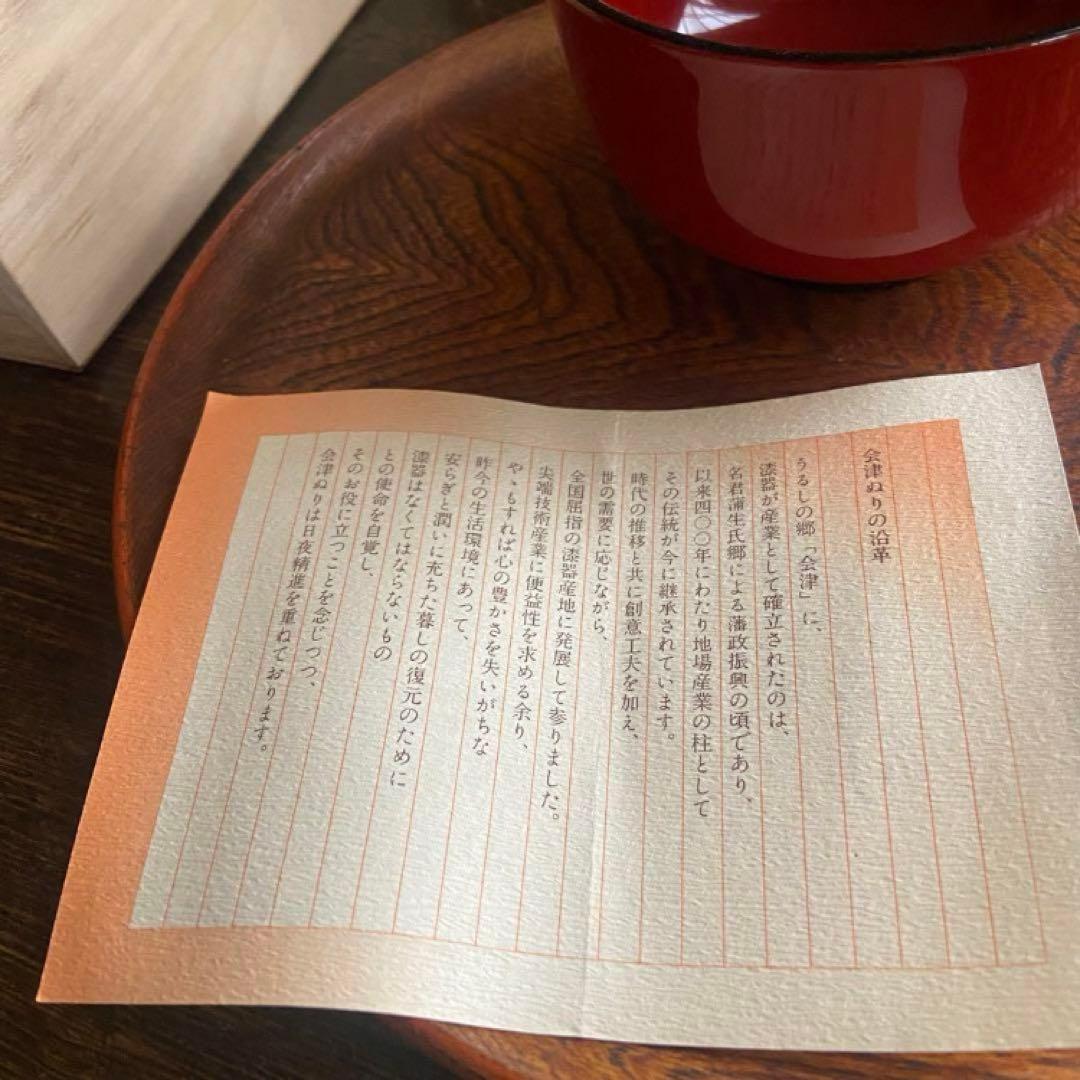 会津ぬりの沿革
うるしの郷「会津」に、
漆器が産業として確立されたのは、
名君蒲生氏郷による藩政振興の頃であり、
以来四〇〇年にわたり地場産業の柱として
その伝統が今に継承されています。
時代の推移と共に創意工夫を加え、
世の需要に応じながら、
全国屈指の漆器産地に発展して参りました。
尖端技術産業に便益性を求める余り、
やゝもすれば心の豊かさを失いがちな
昨今の生活環境にあって、
安らぎと潤いに充ちた暮しの復元のために
漆器はなくてはならないもの
との使命を自覚し、
そのお役に立つことを念じつつ、
会津ぬりは日夜精進を重ねております。